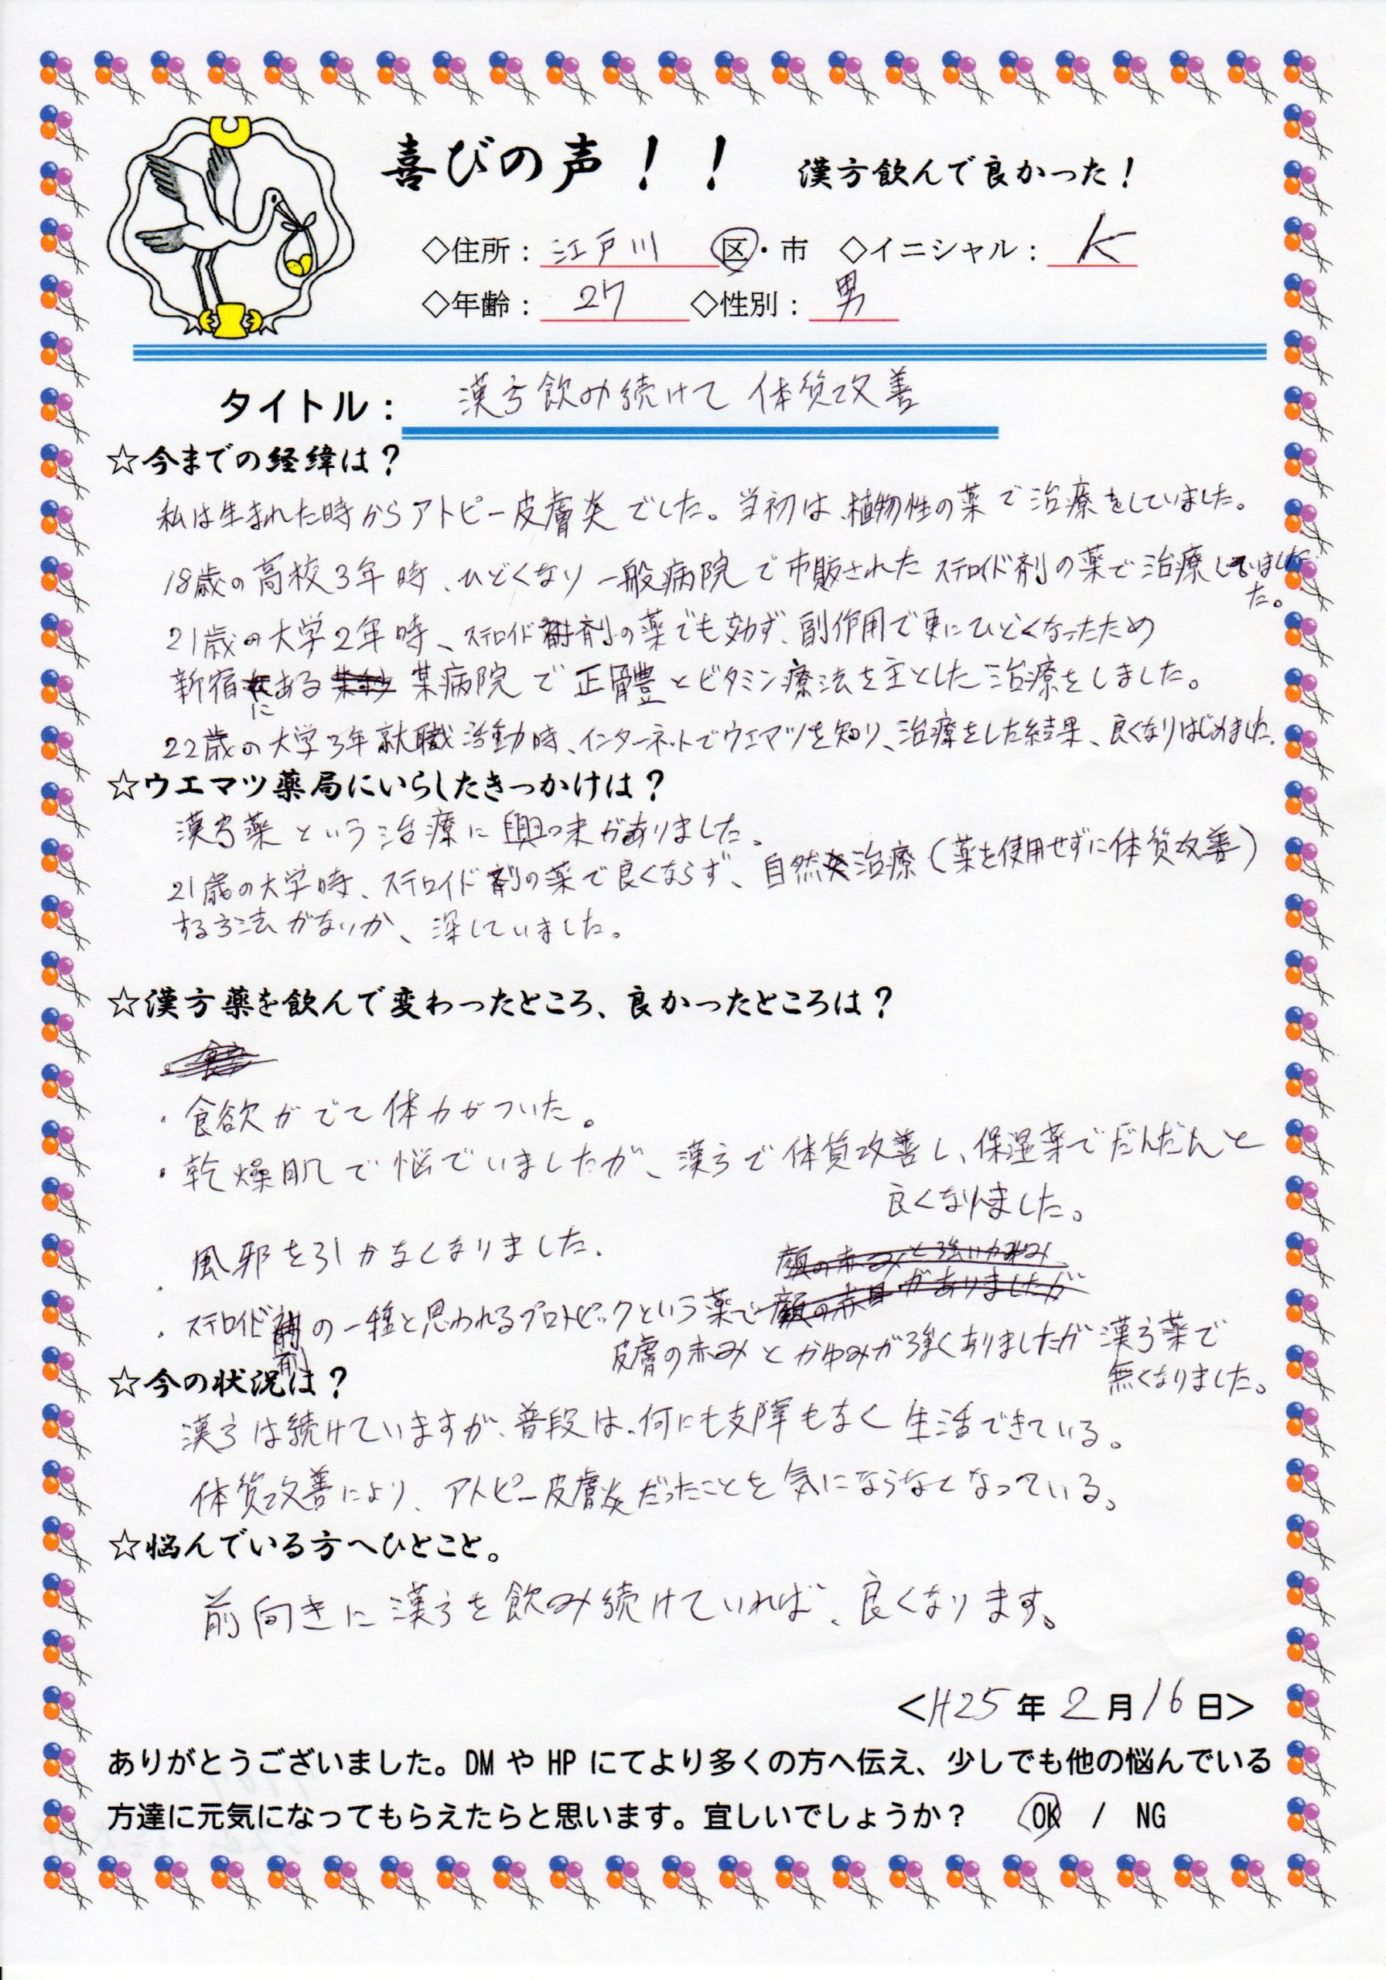 喜びの声！！ 漢方飲んで良かった！
◇住所：江戸川 区・市 ◇イニシャル：K
◇年齢：27 ◇性別：男
タイトル：漢方飲み続けて 体質改善
☆今までの経緯は？
私は生まれた時からアトピー皮膚炎でした。当初は、植物性の薬で治療をしていました。
18歳の高校3年時、ひどくなり一般病院で市販されたステロイド剤の薬で治療していました
た。
21歳の大学2年時、ステロイド剤の薬でも効ず、副作用で更にひどくなったため
新宿にある 某病院で正骨豊とビタミン療法を主とした治療をしました。
22歳の大学3年就職活動時、インターネットでウエマツを知り、治療をした結果、良くなりはじめました。
☆ウエマツ薬局にいらしたきっかけは？
漢方薬という治療に興味がありました。
21歳の大学時、ステロイド剤の薬で良くならず、自然治療（薬を使用せずに体質改善）
する方法がないか、深していました。
☆漢方薬を飲んで変わったところ、良かったところは？
・食欲がでて体力がついた。
・乾燥肌で悩でいましたが、漢方で体質改善し、保湿薬でだんだんと
良くなりました。
・風邪を引かなくなりました。
顔の赤みと強いかゆみ
がありましたが
・ステロイド剤の一種と思われるプロトピックという薬で
皮膚の赤みとかゆみが強くありましたが漢方薬で
無くなりました。
☆今の状況は？
漢方は続けていますが、普段は、何にも支障もなく生活できている。
体質改善により、アトピー皮膚炎だったことを気にならなくなっている。
☆悩んでいる方へひとこと。
前向きに漢方を飲み続けていれば、良くなります。
＜H25年2月16日＞
ありがとうございました。DMやHPにてより多くの方へ伝え、少しでも他の悩んでいる
方達に元気になってもらえたらと思います。宜しいでしょうか？ OK / NG